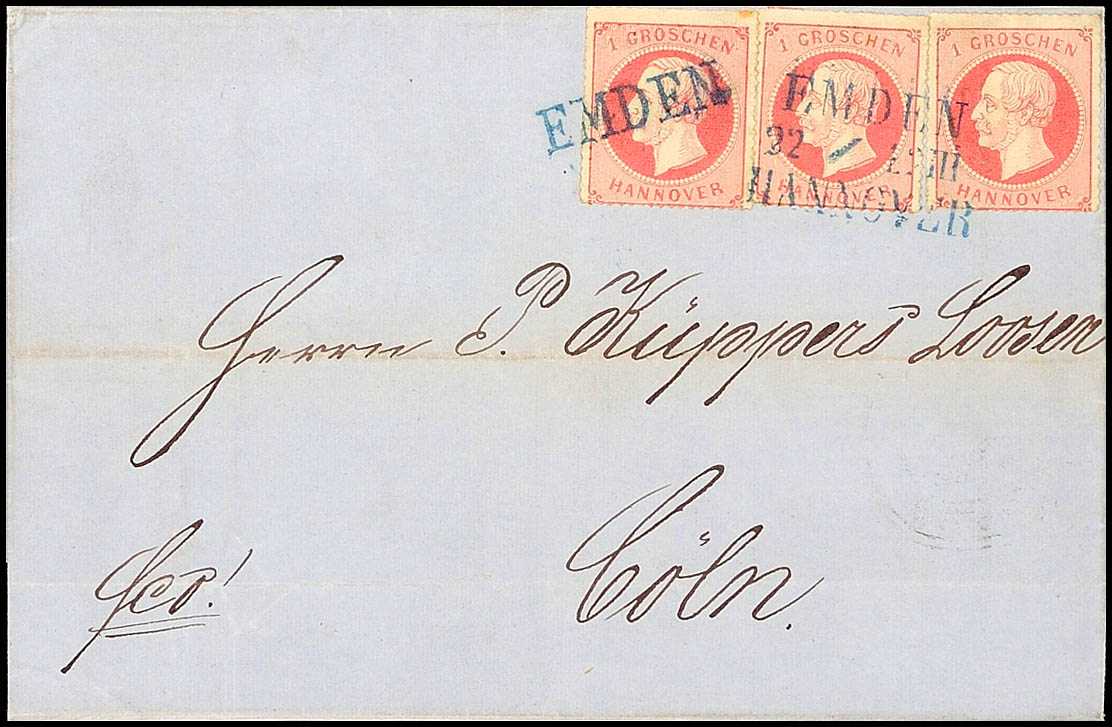 1 GROSCHEN
HANNOVER
1 GROSCHEN
HANNOVER
1 GROSCHEN
HANNOVER
EMDEN
EMDEN
22
HANNOVER
Herrn P. Küppers Loosen
Cöln.
fco!